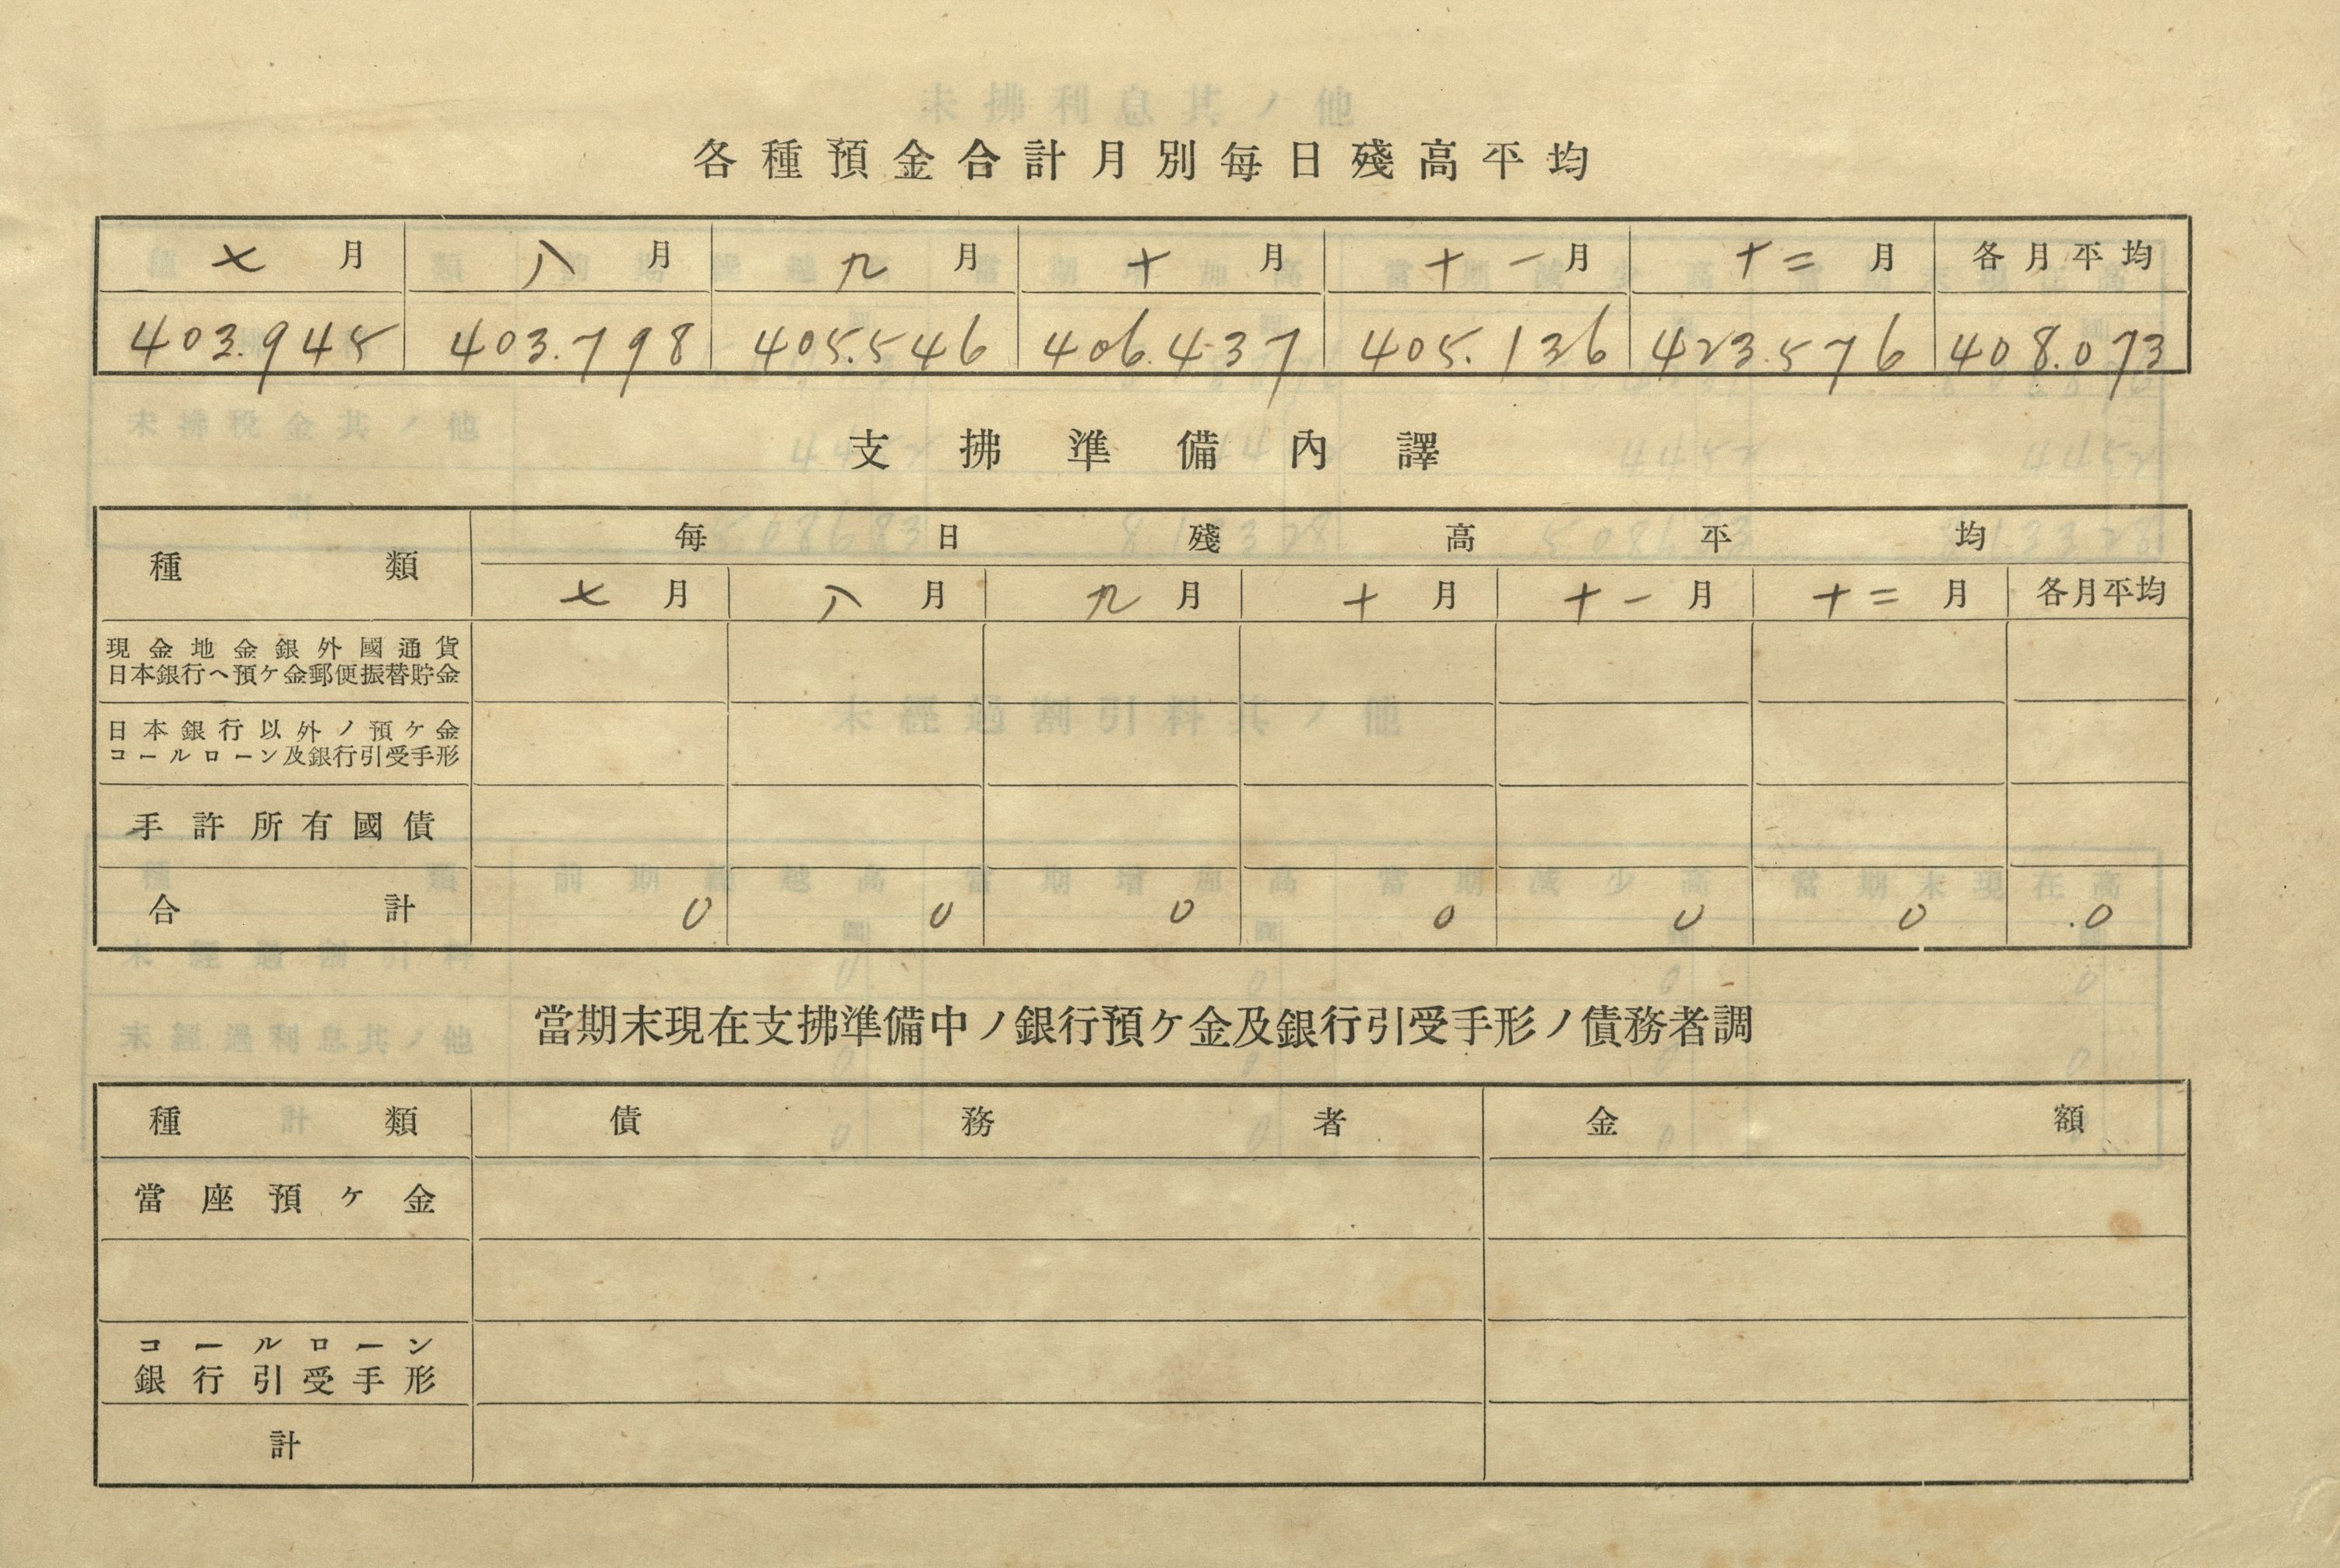 各種預金合計月別每日殘高平均
七月 八月 九月 十月 十一月 十二月 各月平均
403.945 403.798 405.546 406.437 405.136 423.576 408.073
支拂準備內譯
種類 每日殘高平均
七月 八月 九月 十月 十一月 十二月 各月平均
現金地金銀外國通貨
日本銀行ヘ預ケ金郵便振替貯金
日本銀行以外ノ預ケ金
コールローン及銀行引受手形
手許所有國債
合計 0 0 0 0 0 0 .0
當期末現在支拂準備中ノ銀行預ケ金及銀行引受手形ノ債務者調
種類 債務者 金額
當座預ケ金
コールローン
銀行引受手形
計